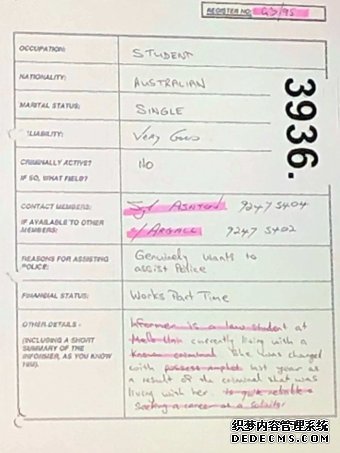 REGISTER NO: G3/95
OCCUPATION: STUDENT
NATIONALITY: AUSTRALIAN
MARITAL STATUS: SINGLE
3936.
LIABILITY: Very Good
CRIMINALLY ACTIVE? NO
IF SO, WHAT FIELD?
CONTACT MEMBERS: Sgt ASHTON 9247 5404
IF AVAILABLE TO OTHER
MEMBERS: ARGALL 9247 5402
REASONS FOR ASSISTING Genuinely wants to
POLICE: assist Police
FINANCIAL STATUS: Works Part Time
OTHER DETAILS - Informer is a law student at
(INCLUDING A SHORT Melb Uni currently living with a
SUMMARY OF THE known criminal She was charged
INFORMER, AS YOU KNOW with possess amphet last year as
HIM). a result of the criminal that was
living with her. Is quite reliable &
Seeking a career as a solicitor
梦想内容管理系统
DEDECMS.COM